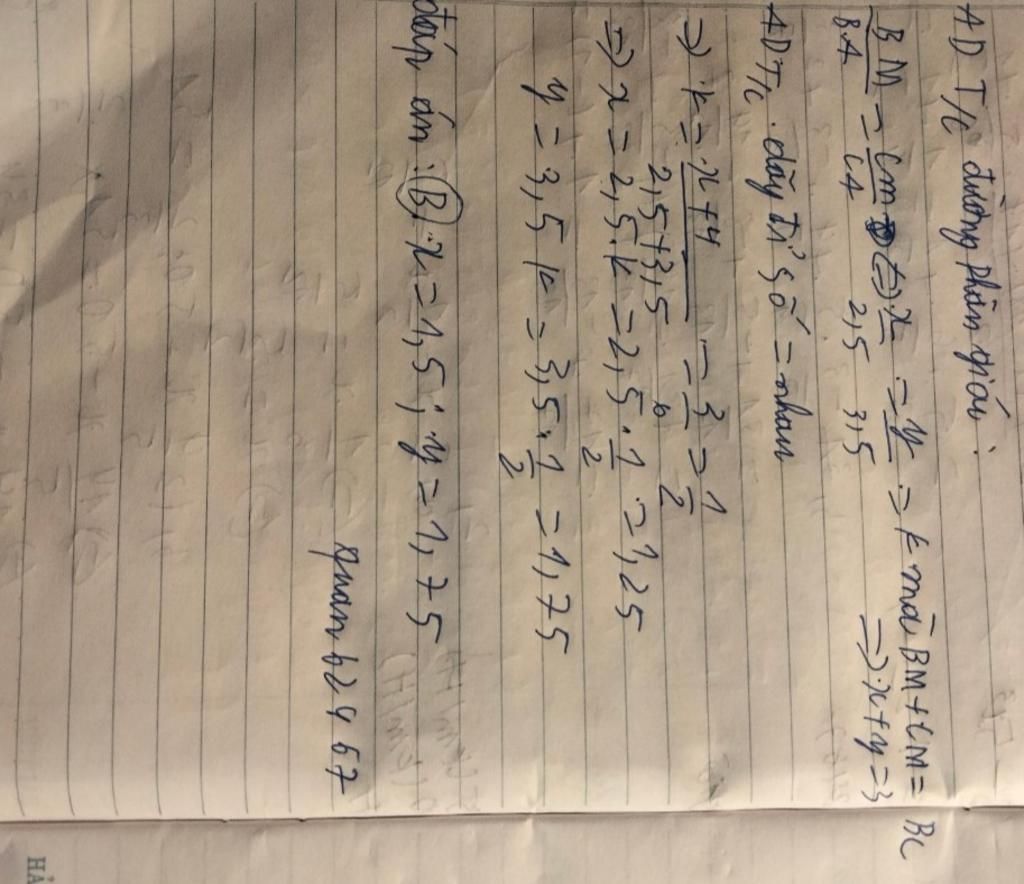 AD T/c đường phân giác:
BM/BA = CM/CA <=> x/2,5 = y/3,5 = k mà BM + CM = BC
=> x + y = 3
ADT/c. dãy tỉ số = nhau
=> k = x+y/2,5+3,5 = 3/6 = 1/2
=> x = 2,5.k = 2,5.1/2 = 1,25
y = 3,5 k = 3,5.1/2 = 1,75
đáp án : B. x = 1,5 ; y = 1,75
quanb2457
HẢ